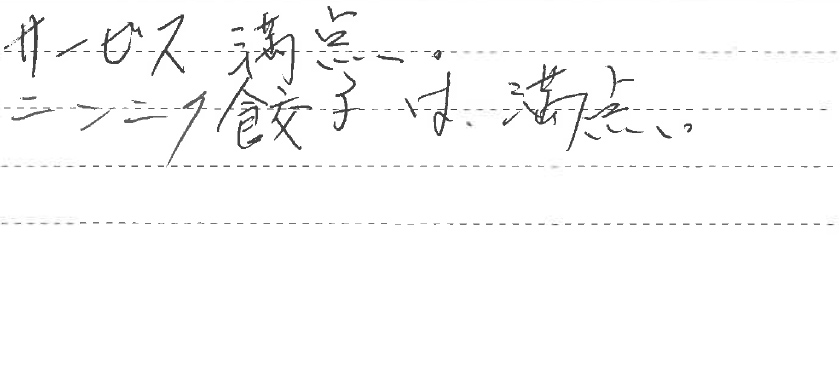 サービス満点。
ニンニク餃子は、満点。